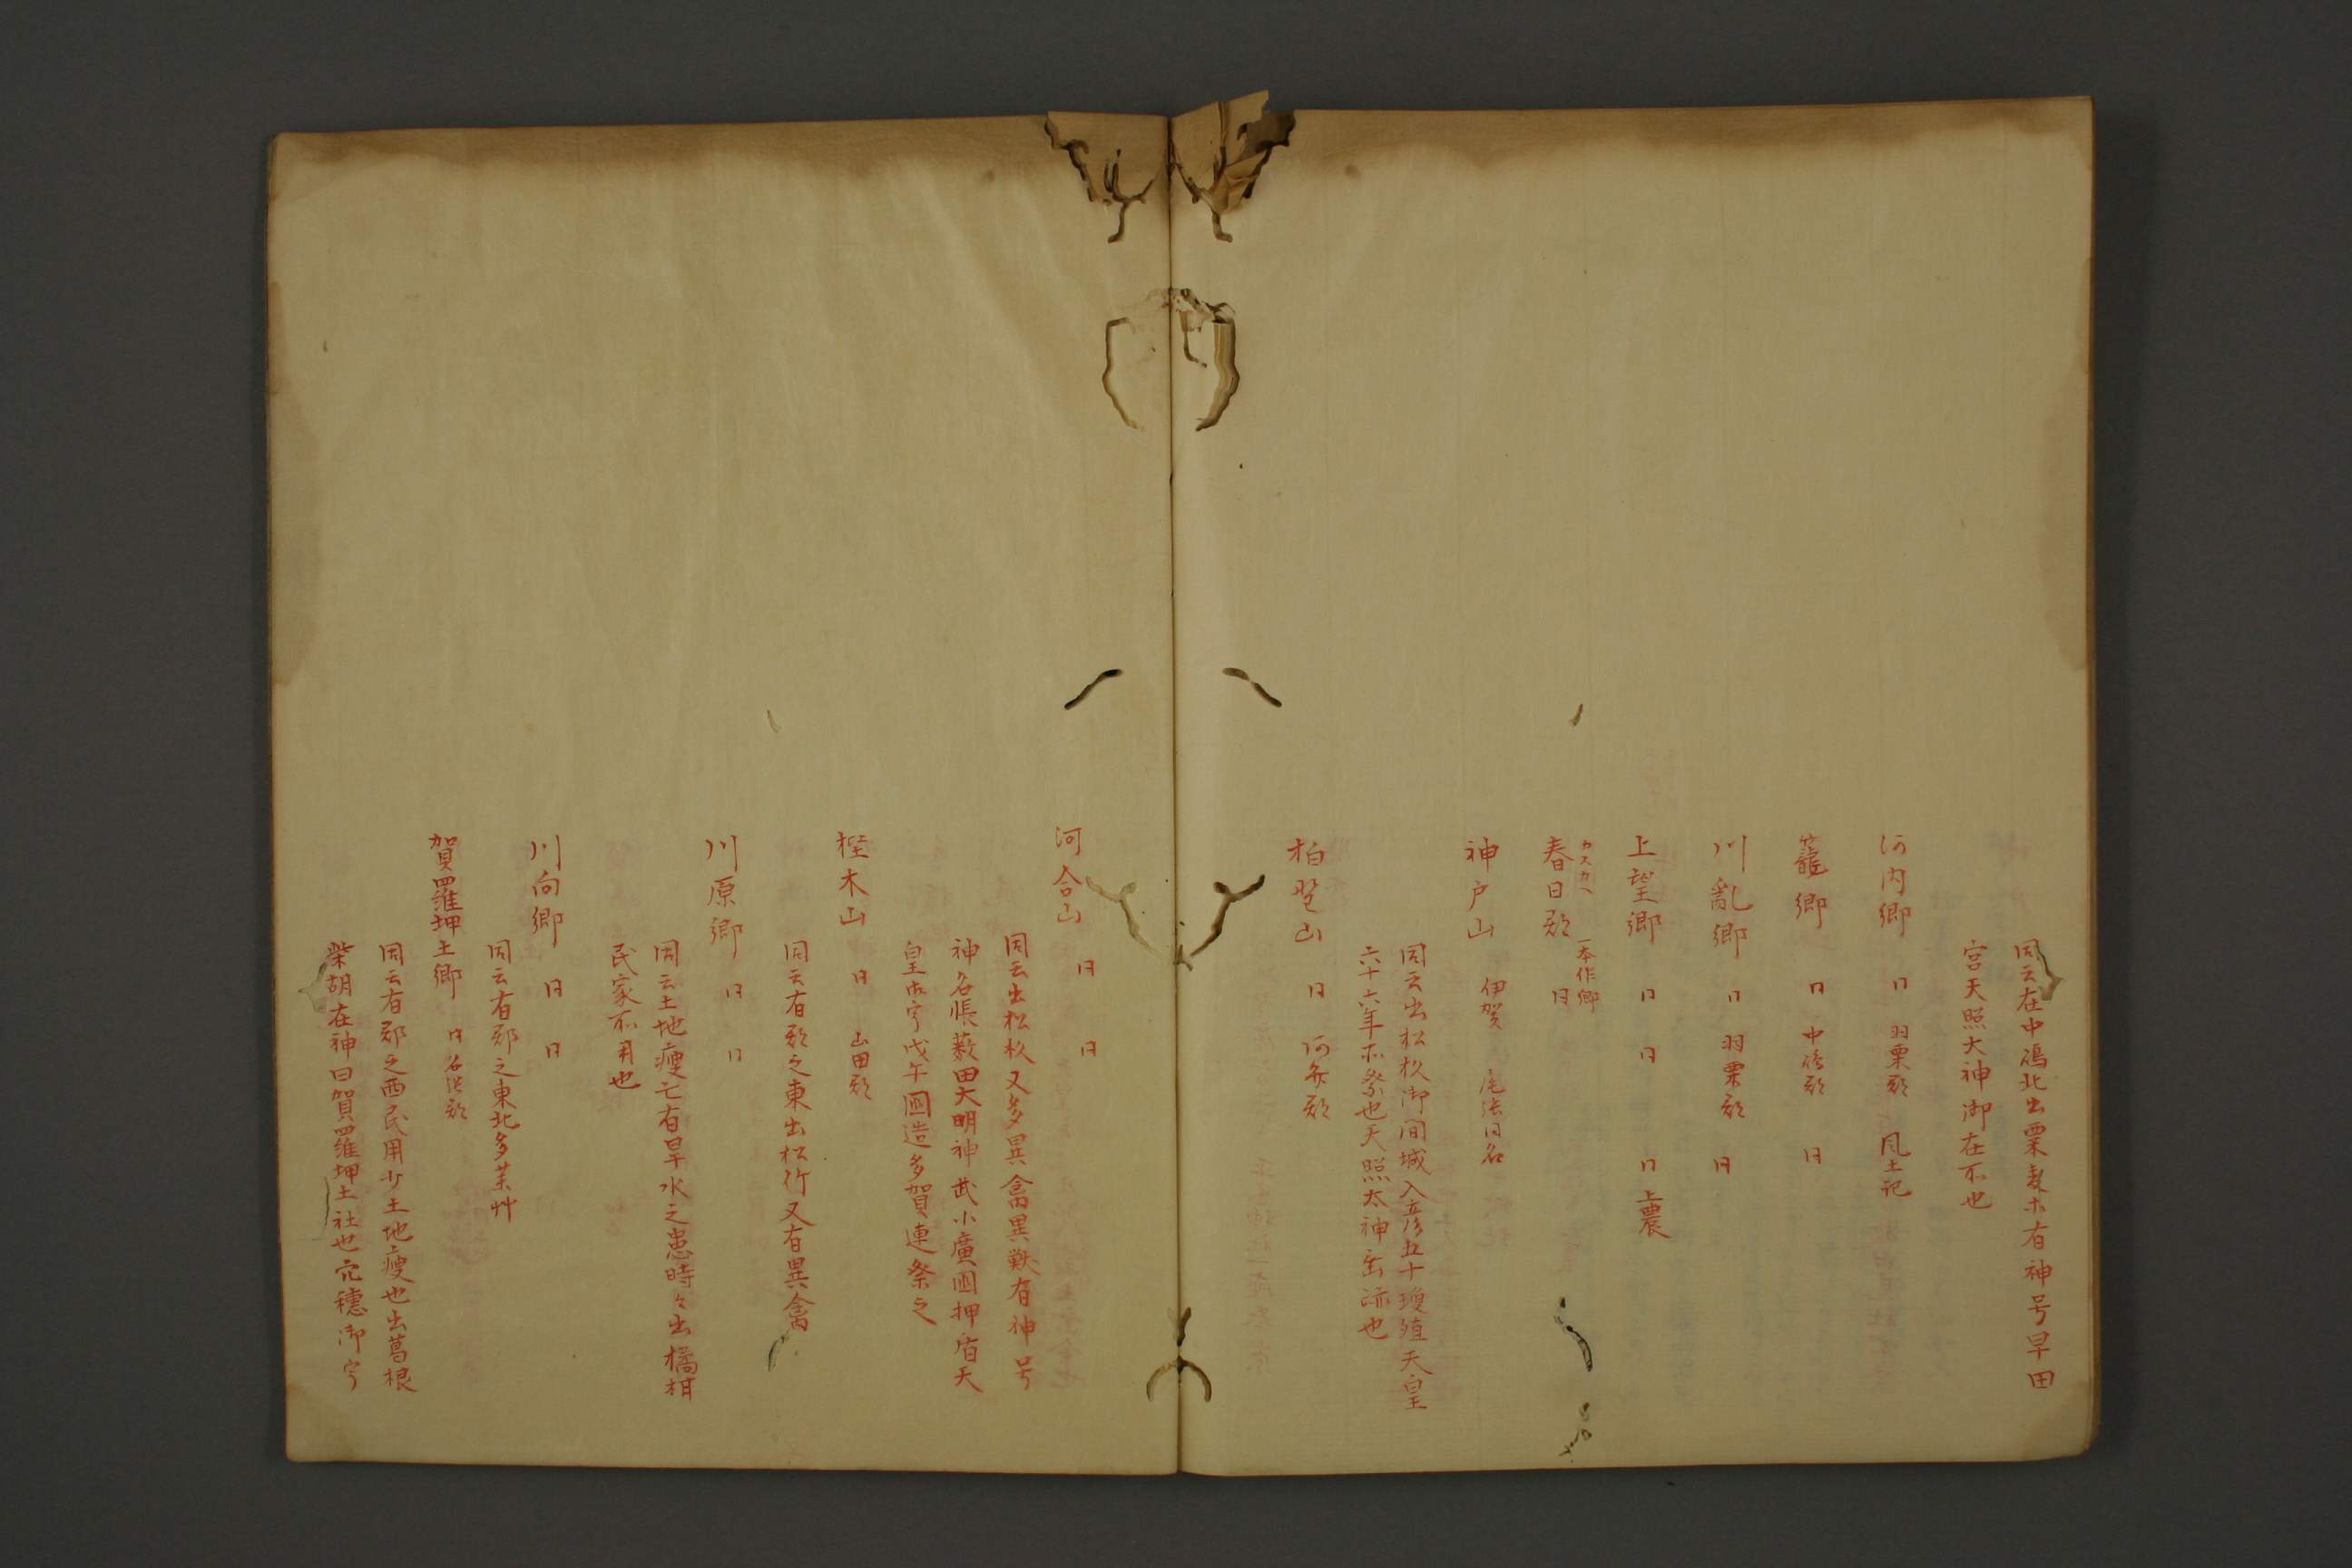 同云在中嶋北出粟麦木有神号早田
宮天照大神御在不也
河内郷　日　羽栗郡　風土記
籠郷　日　中嶋郡　日
川亂郷　日　羽栗郡　日
上望郷　日　日　日　上震
カスカヘ
春日郡　一本作郷　日
神戸山　伊賀　尾張日名
同云出松杉御間城入彦五十瓊殖天皇
六十六年不祭也天照太神垂迹也
柏野山　日　河　郡
河合山　日　日
同云出松杉又多異禽異獣有神号
神名帳薮田大明神武小廣國押盾天
皇御宇戊午國造多賀連祭之
樫木山　日　山田郡
同云有郡之東出松竹又有異禽
川原郷　日　日
同云土地瘦亡有旱水之患時々出橘柑
民家不用也
川向郷　日　日
同云有郡之東北多茅艸
賀羅坤土郷　日　名　郡
同云有郡之西民用少土地瘦也出葛根
柴胡在神曰賀羅坤土社也穴穗御宇